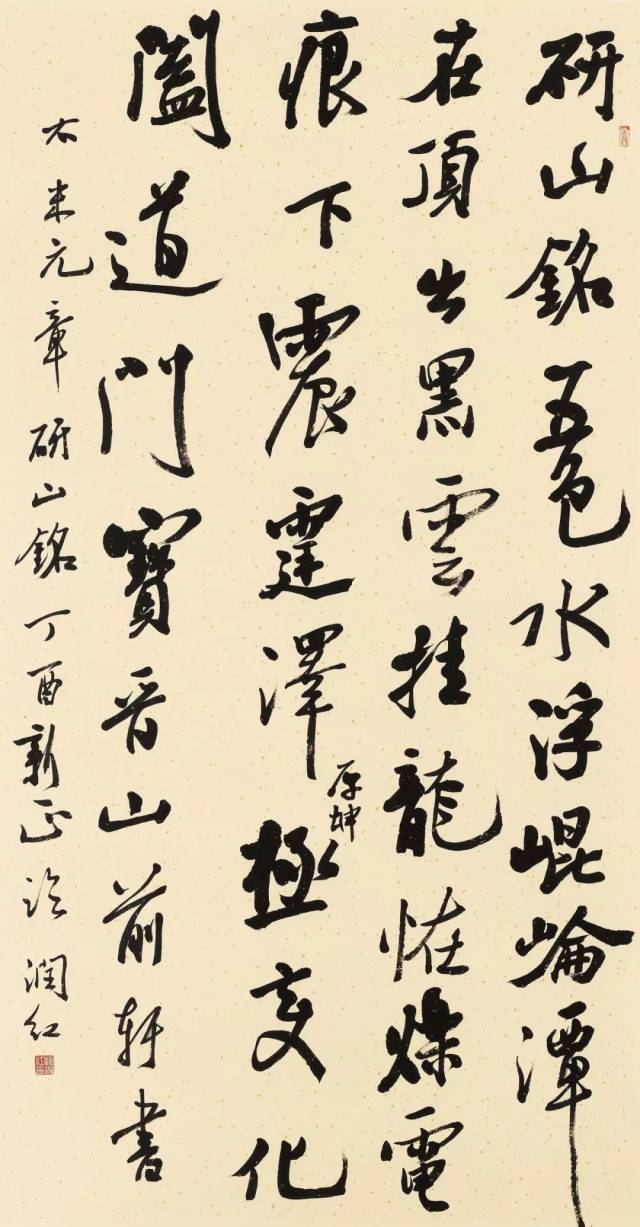 研山銘五色水浮崐崘潭
在頂出黑雲挂龍恠爍電
痕下震霆澤厚坤極变化
闔道門寶晋山前軒書
右米元章研山銘丁酉新正临潤紅